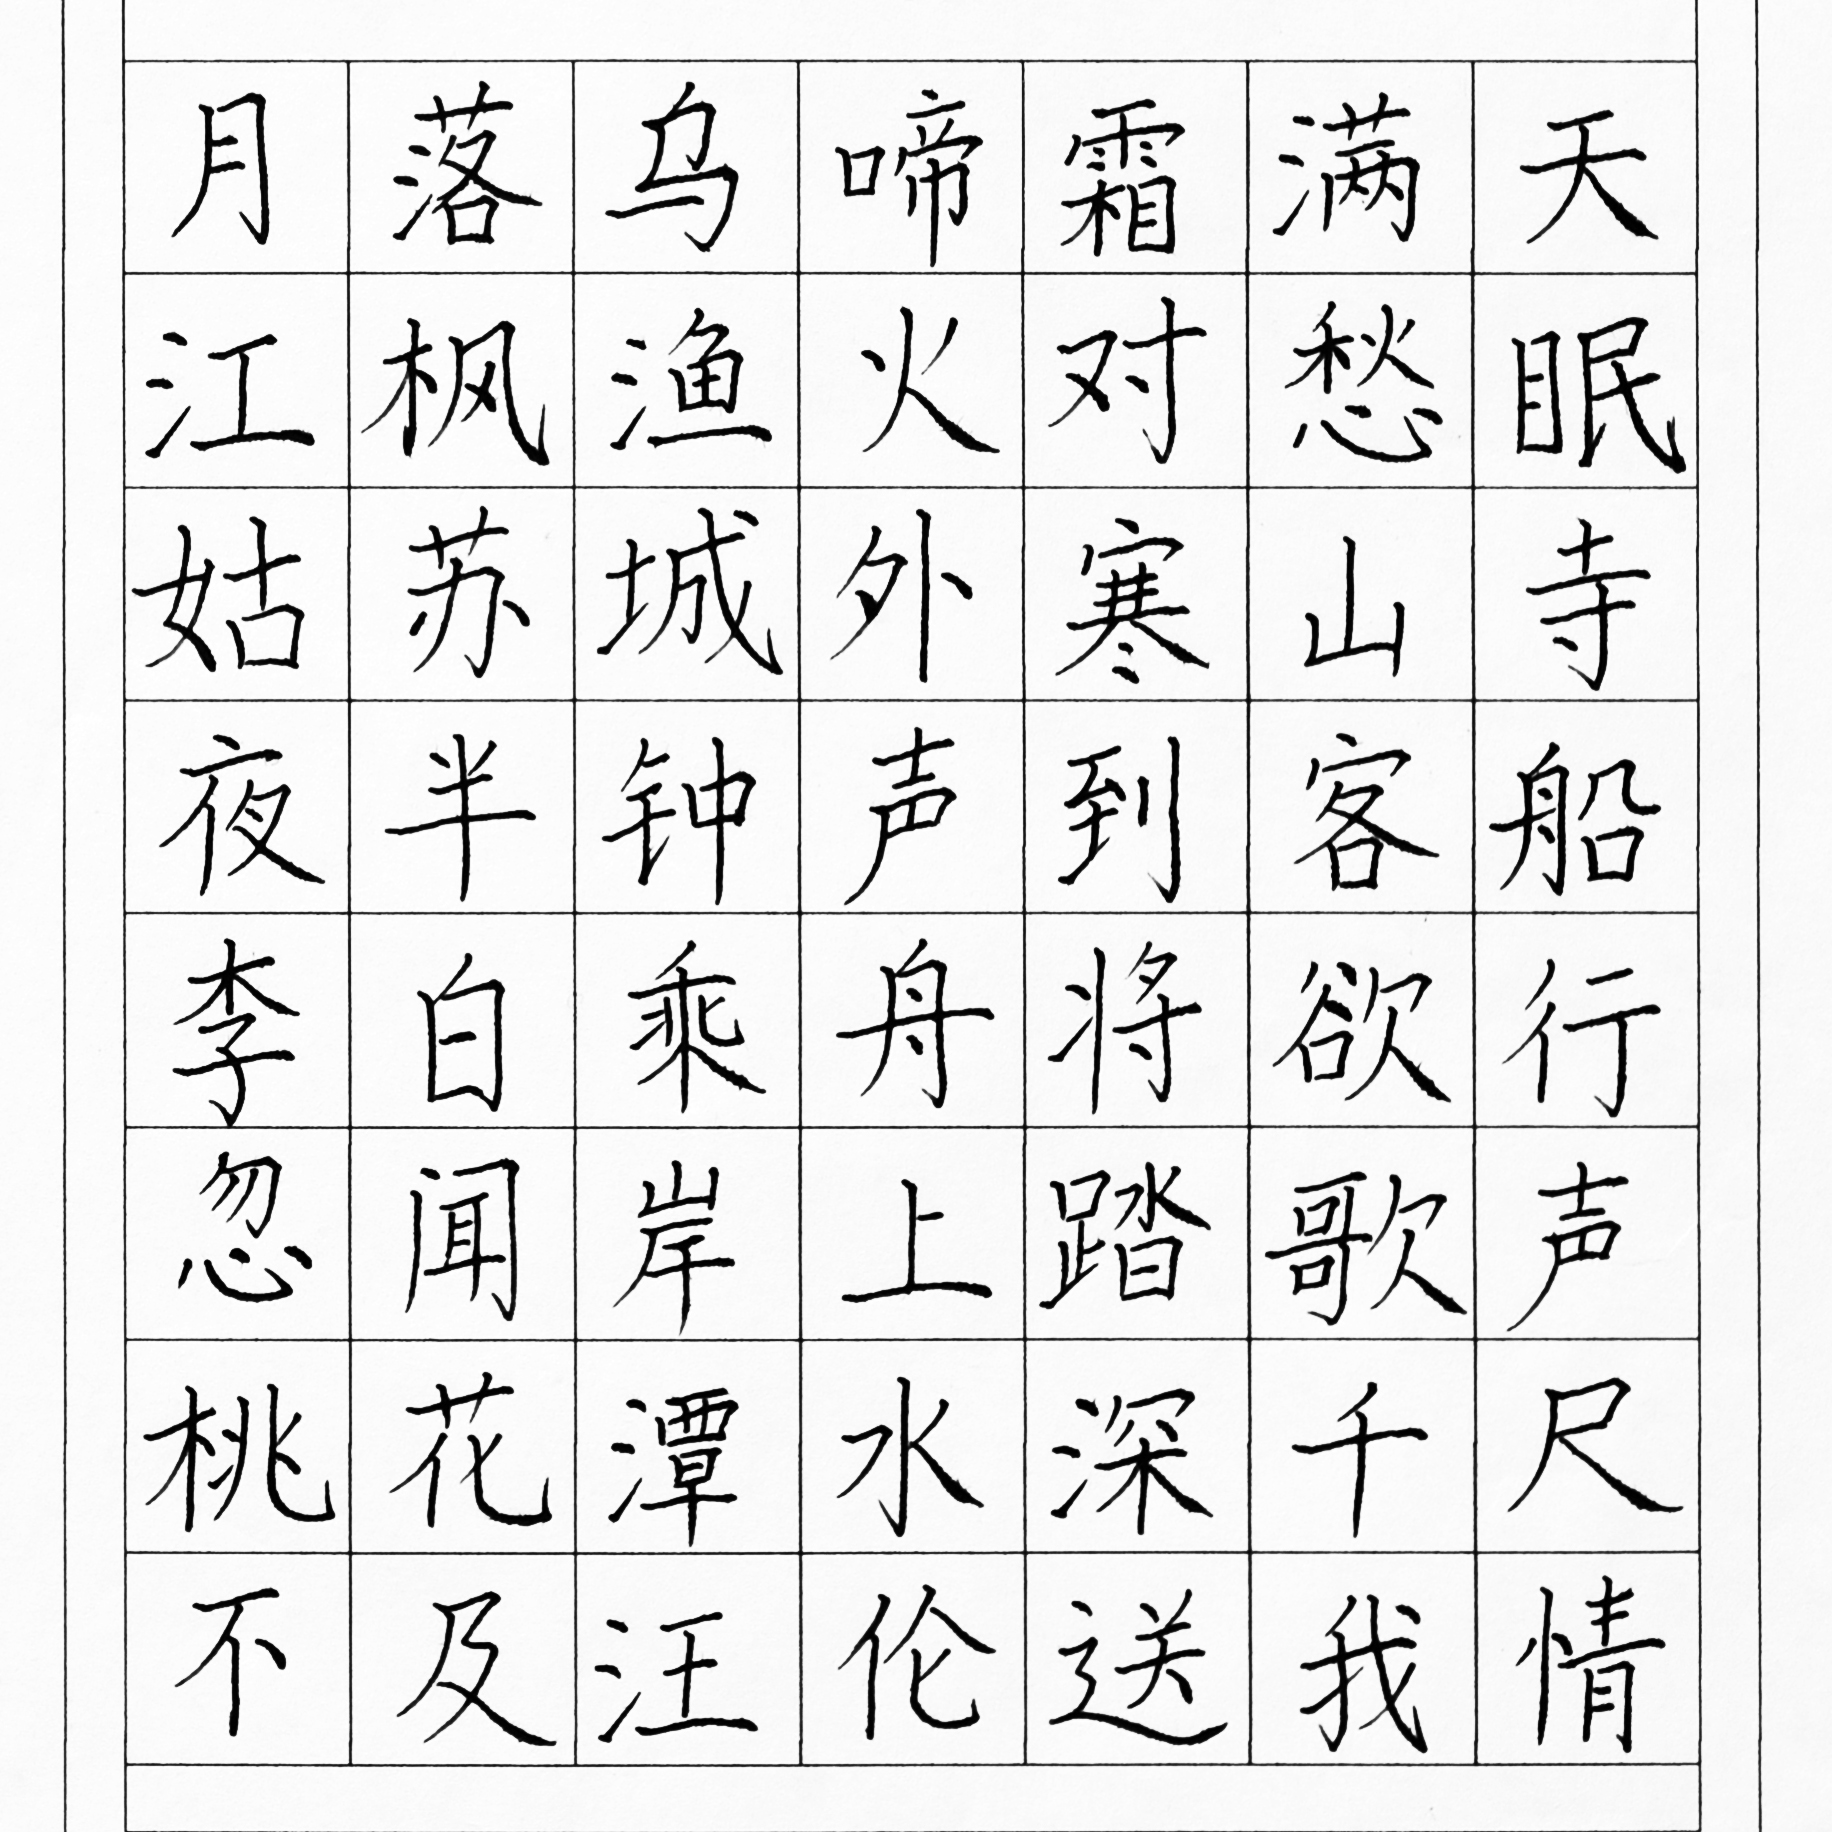 月落乌啼霜满天
江枫渔火对愁眠
姑苏城外寒山寺
夜半钟声到客船
李白乘舟将欲行
忽闻岸上踏歌声
桃花潭水深千尺
不及汪伦送我情